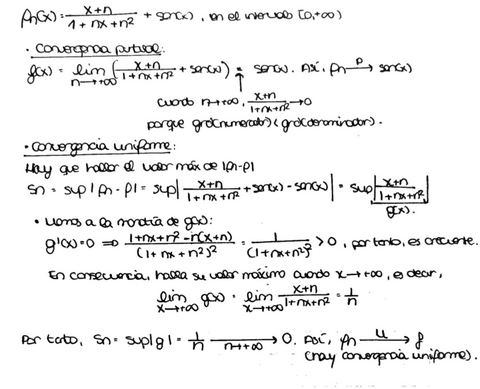 fn(x) = x+n / 1+nx+n² + sen(x), en el intervalo [0,+∞)
· Convergencia puntual:
f(x) = lim n→+∞ (x+n / 1+nx+n² + sen(x)) = sen(x). Así, fn →p sen(x)
cuando n→+∞, x+n / 1+nx+n² → 0
porque grd(numerador)<grd(denominador).
· Convergencia uniforme:
Hay que hallar el valor máx de |fn-f|
Sn = sup|fn-f| = sup|x+n / 1+nx+n² + sen(x) - sen(x)| = sup|x+n / 1+nx+n²|
g(x).
· Vamos a la monotonía de g(x):
g'(x)=0 ⇒ 1+nx+n²-n(x+n) / (1+nx+n²)² = 1 / (1+nx+n²)² > 0, por tanto, es creciente.
En consecuencia, halla su valor máximo cuando x→+∞, es decir,
lim x→+∞ g(x) = lim x→+∞ x+n / 1+nx+n² = 1/n
Por tanto, Sn = sup|g| = 1/n → n→+∞ 0. Así, fn →u f
(hay convergencia uniforme).